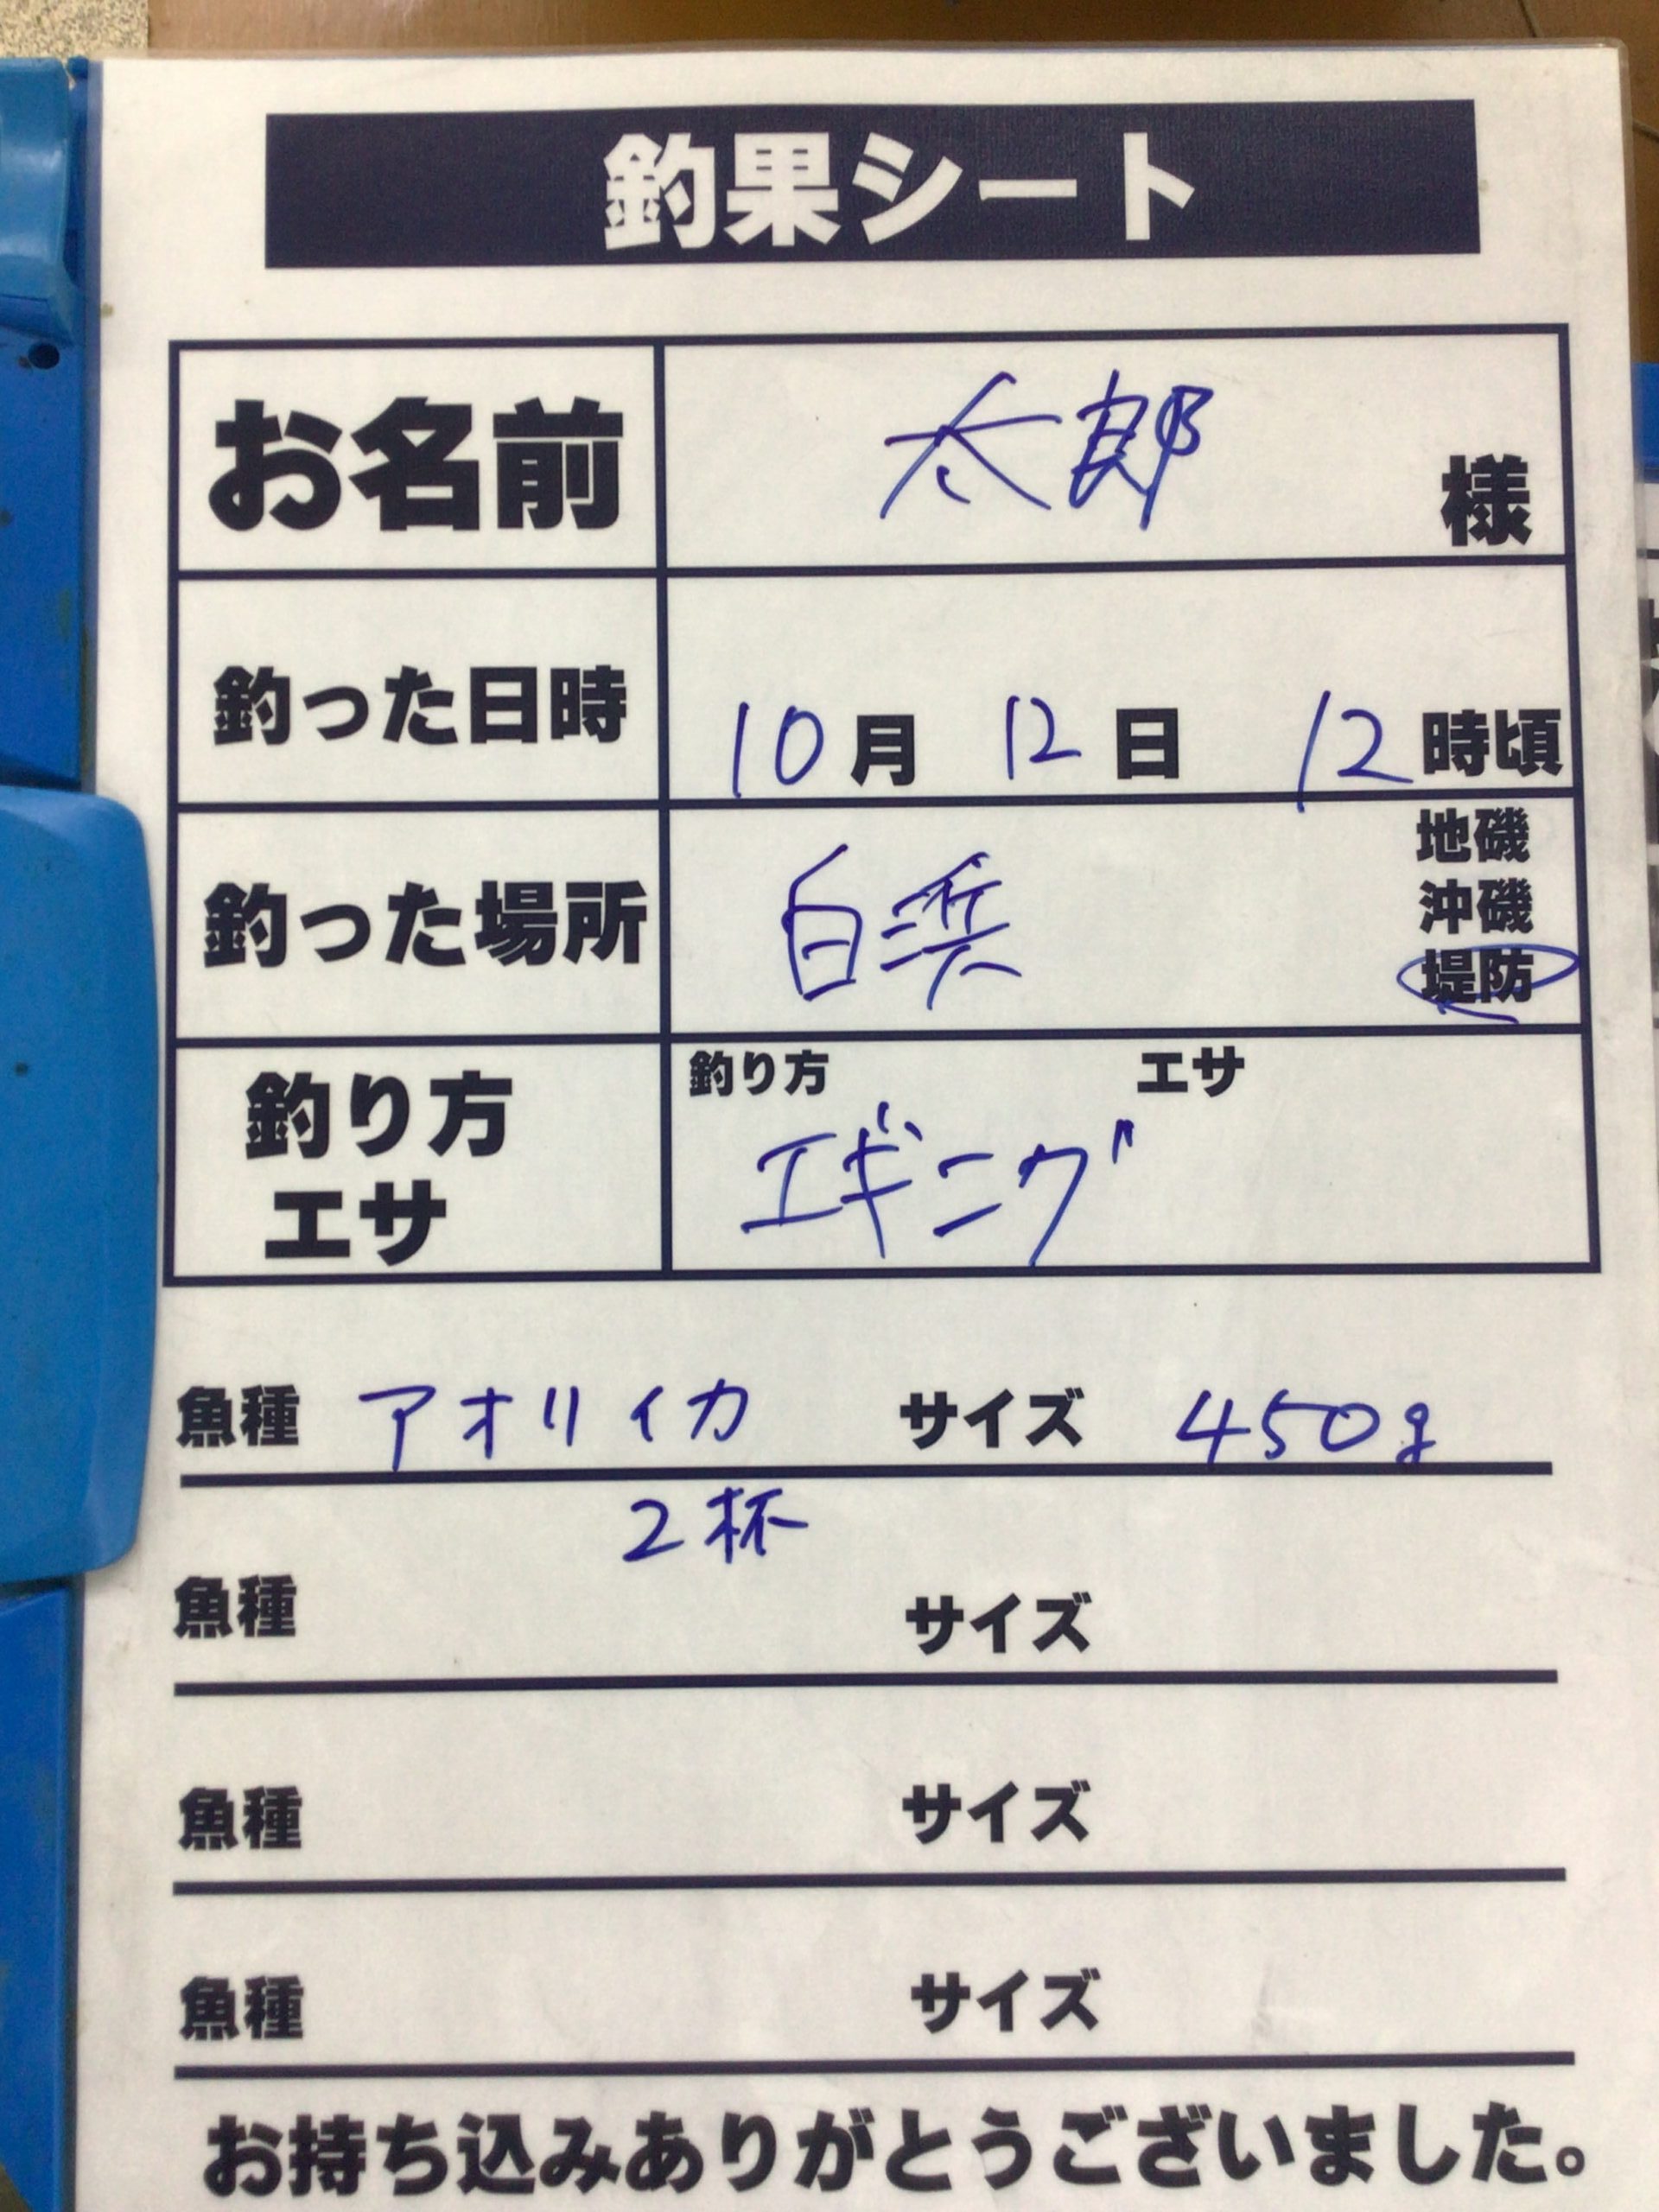 釣果シート
お名前 太郎 様
釣った日時 10月 12日 12時頃
釣った場所 白浜 地磯
沖磯
堤防
釣り方 エサ
釣り方 エギング
エサ
魚種 アオリイカ サイズ 450g
2杯
魚種 サイズ
魚種 サイズ
魚種 サイズ
お持ち込みありがとうございました。